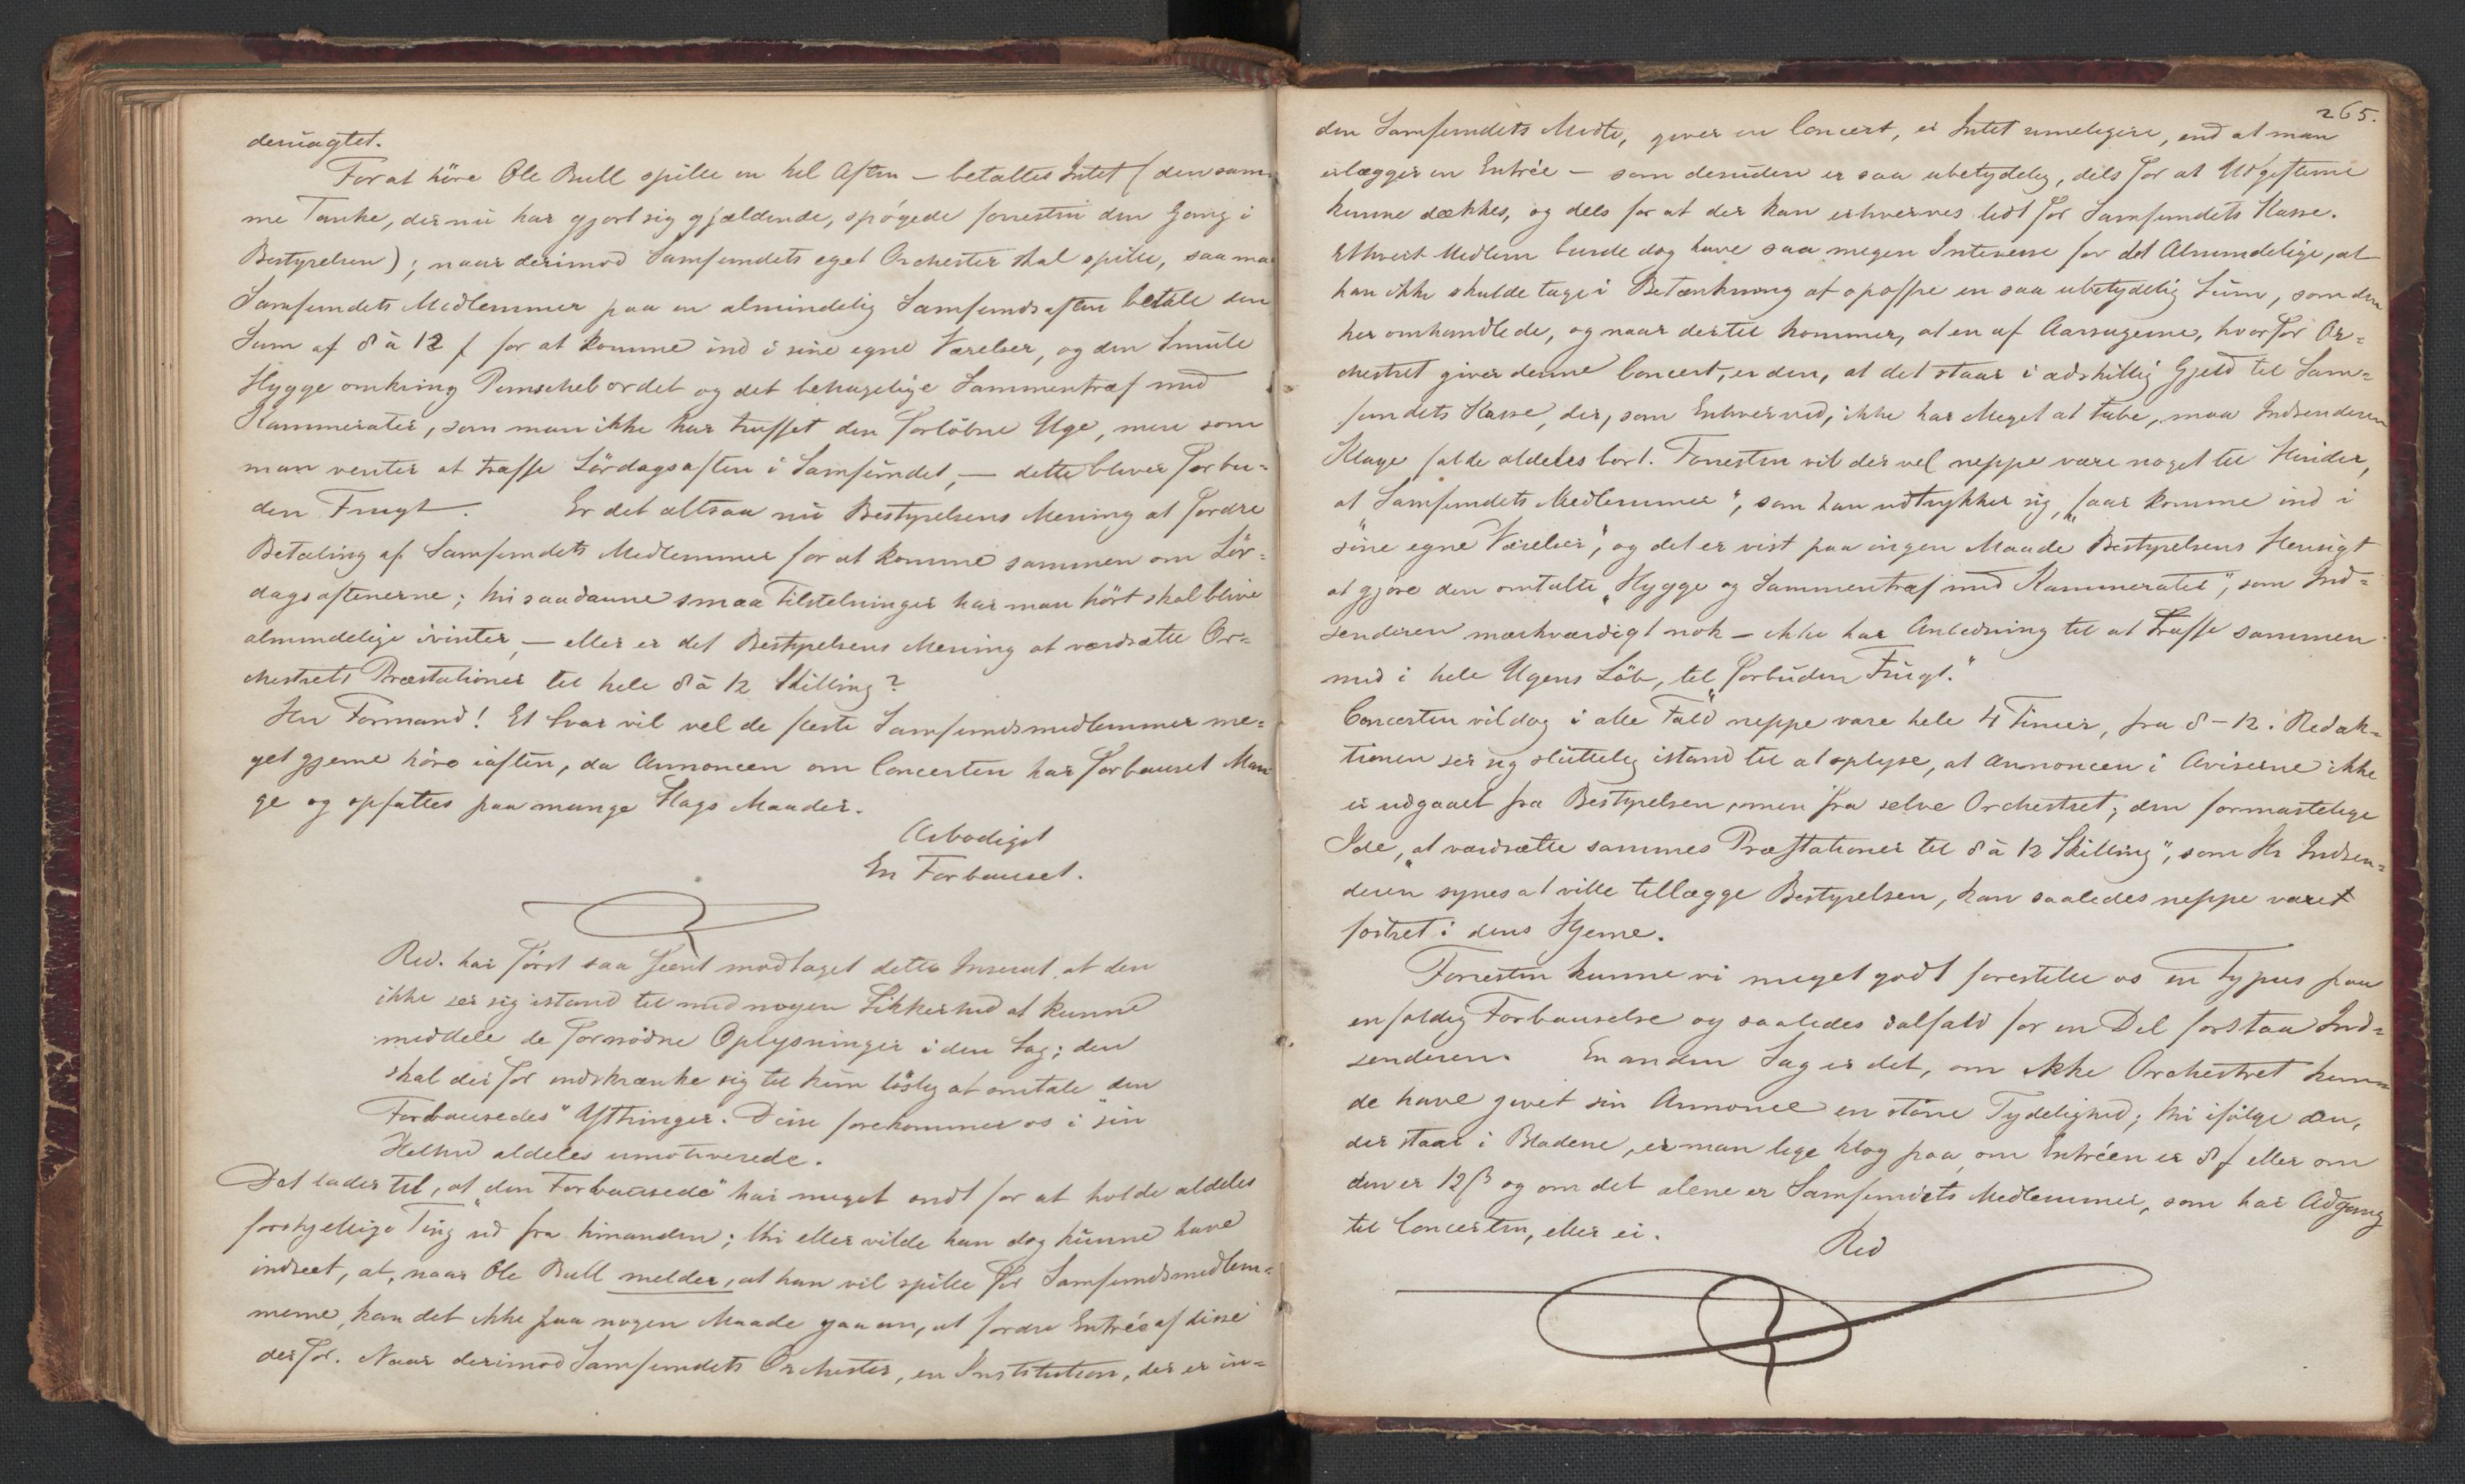 desuagtet.
For at höre Ole Bull spille en hel Aften – betaltes Intet (den sam-
me Tanke, der nu har gjort sig gjældende, spøgede forresten den Gang i
Bestyrelsen); naar derimod Samfundets eget Orchester skal spille, saa maa
Samfundets Medlemmer paa en almindelig Samfundsaften betale den
Sum af 8 à 12 ß for at komme ind i sine egne Værelser, og den Smule
Hygge omkring Punschebordet og det behagelige Sammentræf med
Kammerater, som man ikke har truffet den forløbne Uge, men som
man venter at træffe Lørdagsaften i Samfundet, – dette bliver forbu-
den Frugt. Er det altsaa nu Bestyrelsens Mening at fordre
Betaling af Samfundets Medlemmer for at komme sammen om Lör-
dagsaftenerne; thi saadanne smaa Tilstelninger har man hört skal blive
almindelige ivinter, – eller er det Bestyrelsens Mening at værdsætte Or-
chestrets Præstationer til hele 8 à 12 Skilling?
Hr Formand! Et Svar vil vel de fleste Samfundsmedlemmer me-
get gjerne høre iaften, da Annoncen om Concerten har forbauset Man-
ge og opfattes paa mange Slags Maader.
Ærbødigst
En Forbauset.
Red. har först saa seent modtaget dette Inserat at den
ikke ser sig istand til med nogen Sikkerhed at kunne
meddele de fornødne Oplysninger i den Sag; den
skal derfor indskrænke sig til kun løslig at omtale den
"Forbausedes" Yttringer. Disse forekommer os i sin
Helhed aldeles umotiverede.
Det lader til, at den "Forbausede" har meget ondt for at holde aldeles
forskjellige Ting ud fra hinanden; thi ellers vilde han dog kunne have
indseet, at, naar Ole Bull melder, at han vil spille for Samfundsmedlem-
merne, kan det ikke paa nogen Maade gaa an, at fordre Entrée af disse
derfor. Naar derimod Samfundets Orchester, en Institution, der er in-
265.
den Samfundets Midte, giver en Concert, er Intet rimeligere, end at man
erlægger en Entrée – som desuden er saa ubetydelig, dels for at Udgifterne
kunne dækkes, og dels for at der kan erhverves lidt for Samfundets Kasse.
Ethvert Medlem burde dog have saa megen Interesse for det Almindelige, at
han ikke skulde tage i Betænkning at opoffre en saa ubetydelig Sum, som den
her omhandlede, og naar dertil kommer, at en af Aarsagerne, hvorfor Or-
chestret giver denne Concert, er den, at det staar i adskillig Gjeld til Sam-
fundets Kasse, der, som Enhver ved, ikke har Meget at tabe, maa Indsenderen
Klage falde aldeles bort. Forresten vil der vel neppe være noget til Hinder,
at Samfundets Medlemmer", som han udtrykker sig, "faar komme ind i
sine egne Værelser", og det er vist paa ingen Maade Bestyrelsens Hensigt
at gjøre den omtalte "Hygge og Sammentræf med Kammerater", som Ind-
senderen mærkværdigt nok – ikke har Anledning til at træffe sammen
med i hele Ugens Löb, til "forbuden Frugt."
Concerten vil dog i alle Fald neppe vare hele 4 Timer, fra 8–12. Redak-
tionen ser sig sluttelig istand til at oplyse, at Annoncen i Aviserne ikke
er udgaaet fra Bestyrelsen, men fra selve Orchestret; den formastelige
Ide, "at værdsætte sammes Præstationer til 8 à 12 Skilling", som Hr Indsen-
deren synes at ville tillægge Bestyrelsen, kan saaledes neppe været
fostret i dens Hjerne.
Forresten kunne vi meget godt forestille os en Typus paa
enfoldig Forbauselse og saaledes ialfald for en Del forstaa Ind-
senderen. En anden Sag er det, om ikke Orchestret kun-
de have givet sin Annonce en større Tydelighed; thi ifölge den,
der staar i Bladene, er man lige klog paa, om Entréen er 8 ß eller om
den er 12 ß og om det alene er Samfundets Medlemmer, som har Adgang
til Concerten, eller ei.
Red